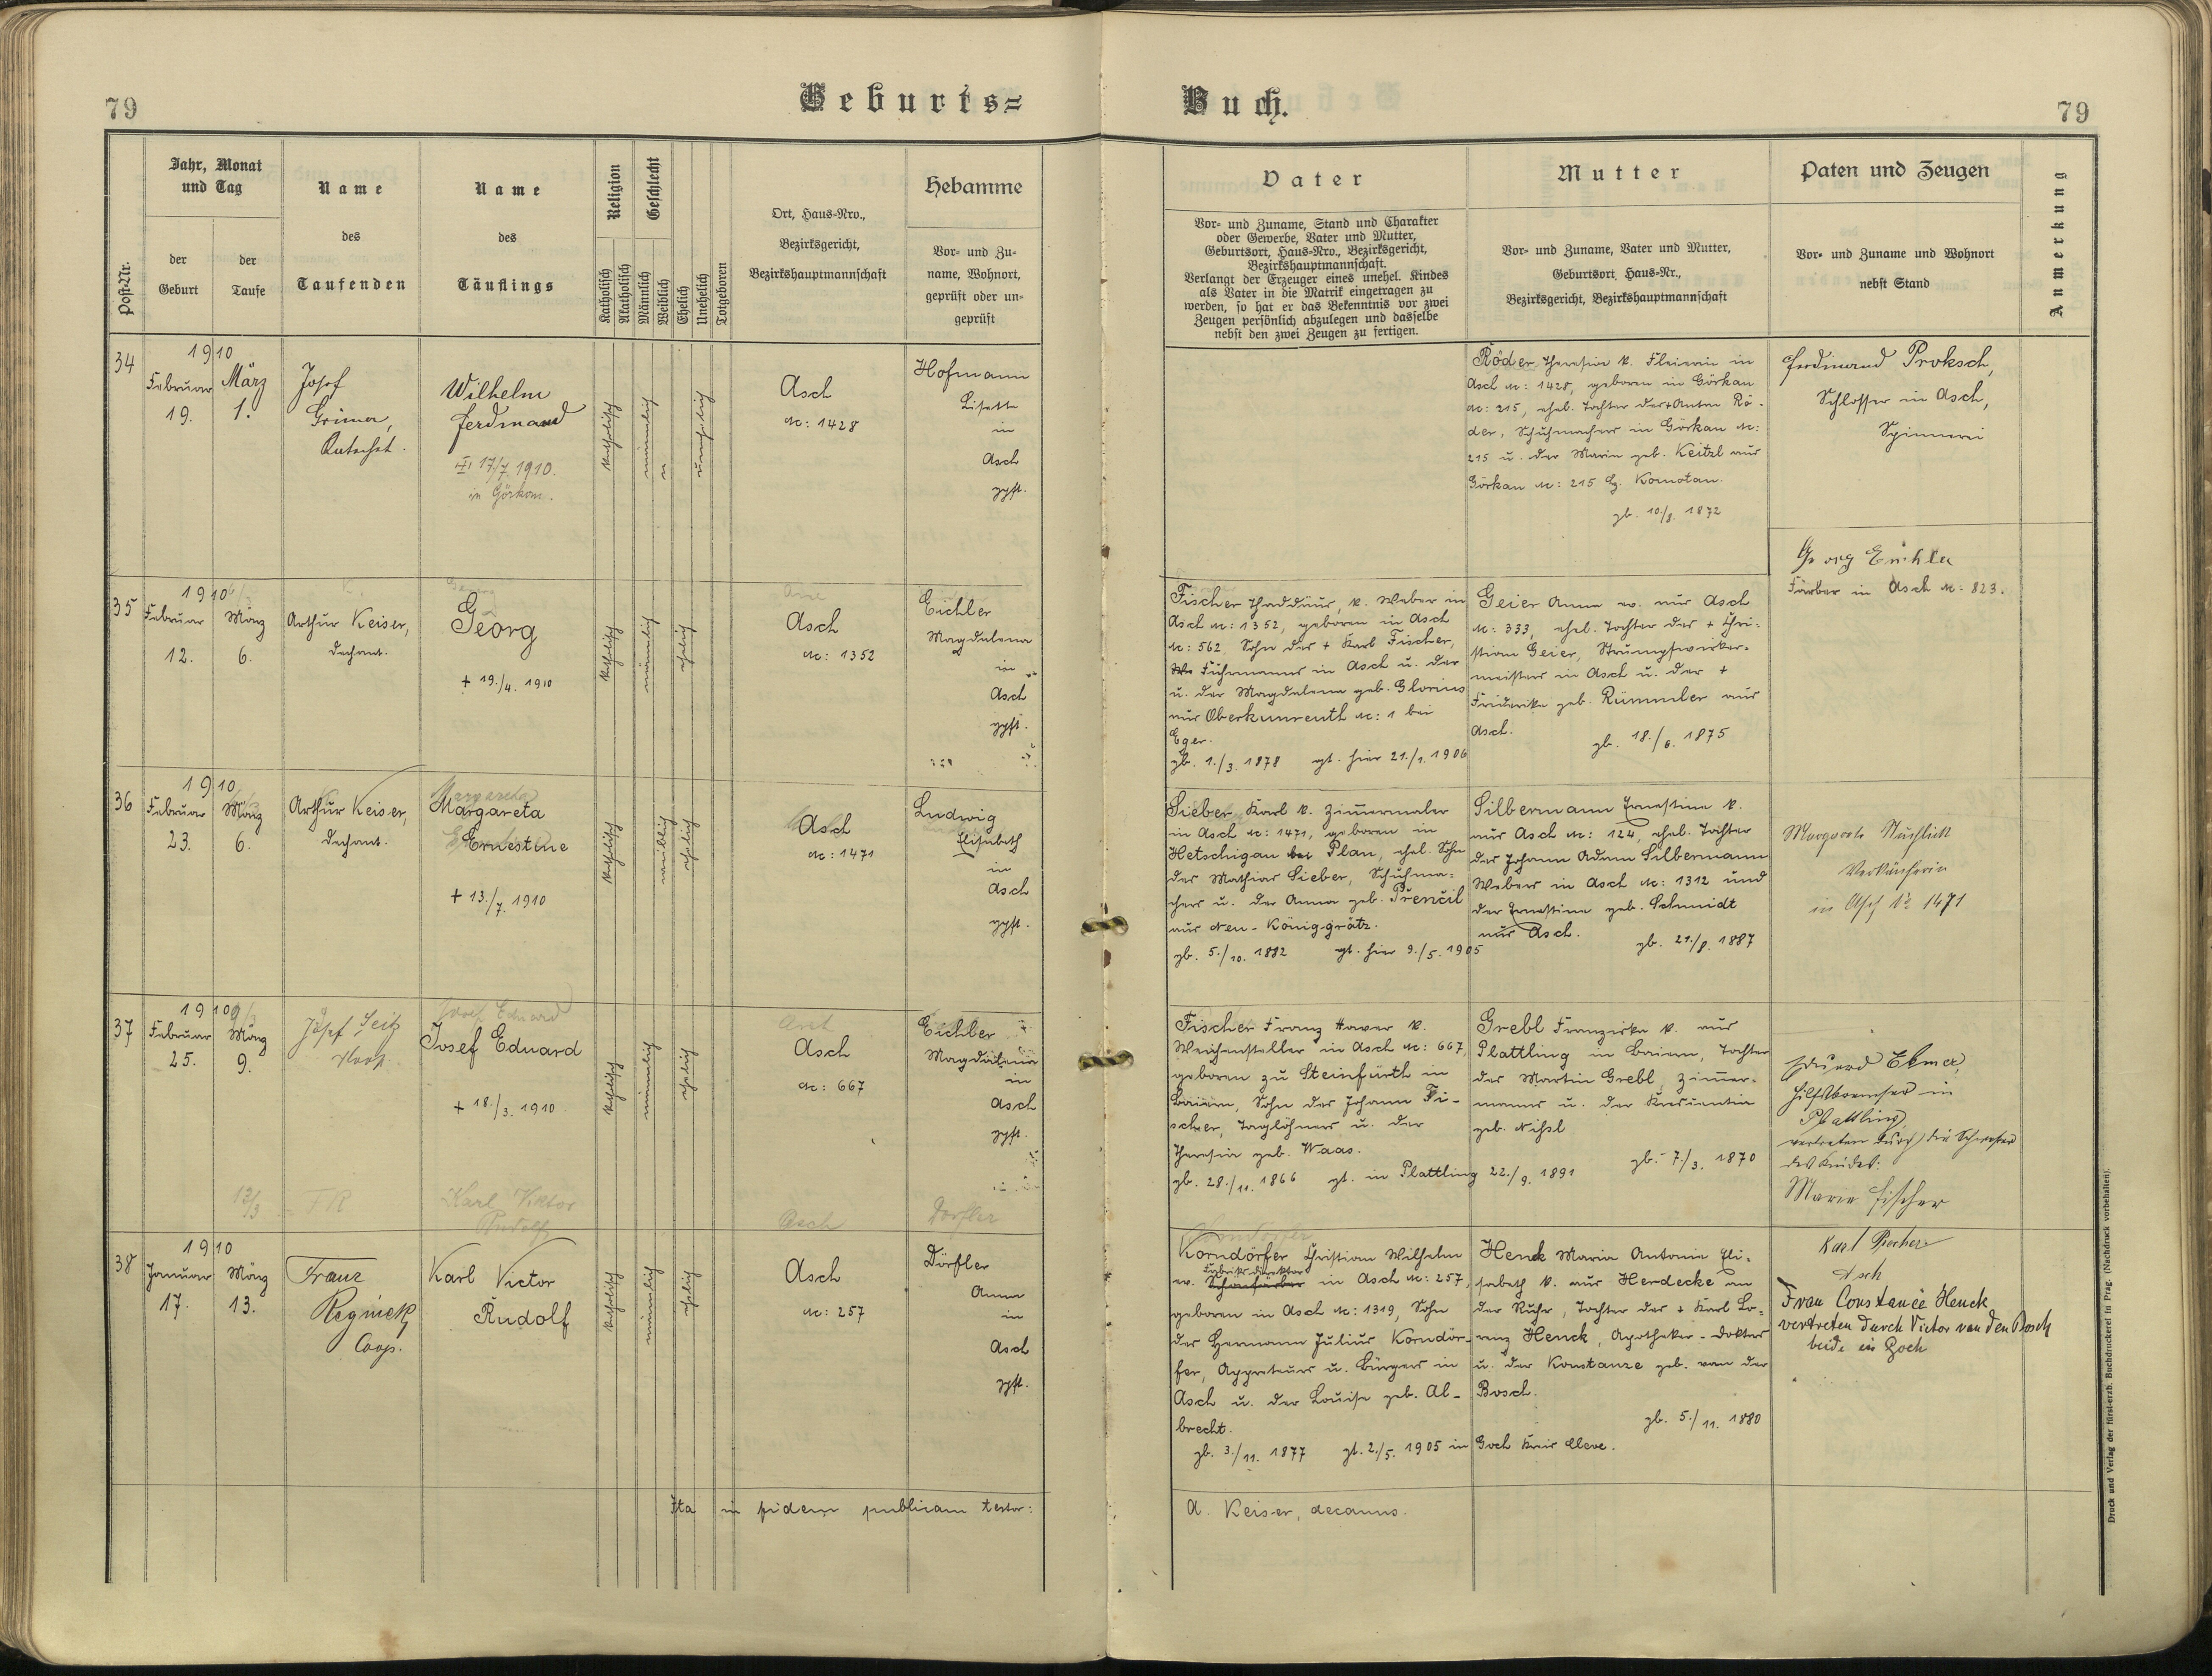 79
Geburts=
Buch.
79
Post-Nr.
Jahr, Monat
und Tag
der
Geburt
der
Taufe
Name
des
Taufenden
Name
des
Täuflings
Religion
Katholisch
Akatholisch
Geschlecht
Männlich
Weiblich
Ehelich
Unehelich
Totgeboren
Ort, Haus=Nro.,
Bezirksgericht,
Bezirkshauptmannschaft
Hebamme
Vor= und Zu=
name, Wohnort,
geprüft oder un=
geprüft
Vater
Vor= und Zuname, Stand und Charakter
oder Gewerbe, Vater und Mutter,
Geburtsort, Haus=Nro., Bezirksgericht,
Bezirkshauptmannschaft.
Verlangt der Erzeuger eines unehel. Kindes
als Vater in die Matrik eingetragen zu
werden, so hat er das Bekenntnis vor zwei
Zeugen persönlich abzulegen und dasselbe
nebst den zwei Zeugen zu fertigen.
Mutter
Vor= und Zuname, Vater und Mutter,
Geburtsort, Haus=Nr.,
Bezirksgericht, Bezirkshauptmannschaft
Paten und Zeugen
Vor= und Zuname und Wohnort
nebst Stand
Anmerkung
34
1910
Februar
19.
März
1.
Josef
Wilhelm
Ferdinand
17/7. 1910.
in Görkau.
katholisch
männlich
unehelich
Asch
N: 1428
Hofmann
Lisette
in
Asch
gpft.
Röder Theresia k. in
Asch N: 1428, geboren in Görkau
N: 215, ehel. Tochter des + Anton Rö-
der, Schuhmachers in Görkau N:
215 u. der Maria geb. Keitzl aus
Görkau N: 215 Bz. Komotau.
gb. 10./8. 1872
Ferdinand Proksch,
Schlosser in Asch,
Spinnerei
35
1910
Februar
12.
März
6.
Arthur Keiser,
Dechant.
Georg
+ 19./4. 1910
katholisch
männlich
ehelich
Asch
N: 1352
Eichler
Magdalena
in
Asch
gpft.
Fischer Thaddäus, k. Weber in
Asch N: 1352, geboren in Asch
N: 562, Sohn des + Karl Fischer,
Fuhrmanns in Asch u. der
u. der Magdalena geb. Glorius
aus Oberkunreuth N: 1 bei
Eger.
gb. 1./3. 1878 gt. hier 21./1. 1906
Geier Anna ev. aus Asch
N: 333, ehel. Tochter des + Chri-
stian Geier, Strumpfwirker-
meisters in Asch u. der +
Friderike geb. Rümmler aus
Asch.
gb. 18./6. 1875
Georg Eichler
Färber in Asch N: 823.
36
1910
Februar
23.
März
6.
Arthur Keiser,
Dechant.
Margareta
Ernestine
+ 13./7. 1910
katholisch
weiblich
ehelich
Asch
N: 1471
Ludwig
Elisabeth
in
Asch
gpft.
Sieber Karl k. Zimmermaler
in Asch N: 1471, geboren in
Hetschigau bei Plan, ehel. Sohn
des Mathias Sieber, Schuhma-
chers u. der Anna geb. Přenčil
aus Neu-Königgrätz.
gb. 5./10. 1882 gt. hier 9./5. 1905
Silbermann Ernestine k.
aus Asch N: 124, ehel. Tochter
des Johann Adam Silbermann
Webers in Asch N: 1312 und
der Ernestine geb. Schmidt
aus Asch.
gb. 21./8. 1887
Verkäuferin
in Asch No 1471
37
1910
Februar
25.
März
9.
Josef Seitz
Koop.
Josef Eduard
+ 18./3. 1910
katholisch
männlich
ehelich
Asch
N: 667
Eichler
Magdalena
in
Asch
gpft.
Fischer Franz Xaver k.
Weichensteller in Asch N: 667,
geboren zu Steinfürth in
Baiern, Sohn des Johann Fi-
scher, Taglöhners u. der
Theresia geb. Waas.
gb. 28./11. 1866 gt. in Plattling 22./9. 1891
Grebl Franziska k. aus
Plattling in Baiern, Tochter
des Martin Grebl, Zimmer-
manns u. der Kreszentia
geb. Nissl
gb. 7./3. 1870
Eduard Ebmer,
Hilfsbremser in
Plattling,
vertreten durch die Schwester
des Kindes:
Marie Fischer
13/3
FR
Karl Viktor
Rudolf
Asch
Dörfler
38
1910
Januar
17.
März
13.
Franz
Coop.
Karl Victor
Rudolf
katholisch
männlich
ehelich
Asch
N: 257
Dörfler
Anna
in
Asch
gpft.
Korndörfer Christian Wilhelm
Fabriksdirektor
ev. Schönfärber in Asch N: 257,
geboren in Asch N: 1319, Sohn
des Hermann Julius Korndör-
fer, Appreteurs u. Bürgers in
Asch u. der Louise geb. Al-
brecht.
gb. 3./11. 1877 gt. 2./5. 1905 in Goch Kreis Cleve.
Henck Maria Antonie Eli-
sabeth k. aus Herdecke an
der Ruhr, Tochter des + Karl Lo-
renz Henck, Apotheker-Doktors
u. der Konstanze geb. van der
Bosch.
gb. 5./11. 1880
Karl
Asch
Frau Constance Henck
vertreten durch Victor van den Bosch
beide in Goch
Ita in fidem publicam testor:
A. Keiser, decanus.
Druck und Verlag der fürst-erzb. Buchdruckerei in Prag. (Nachdruck vorbehalten).